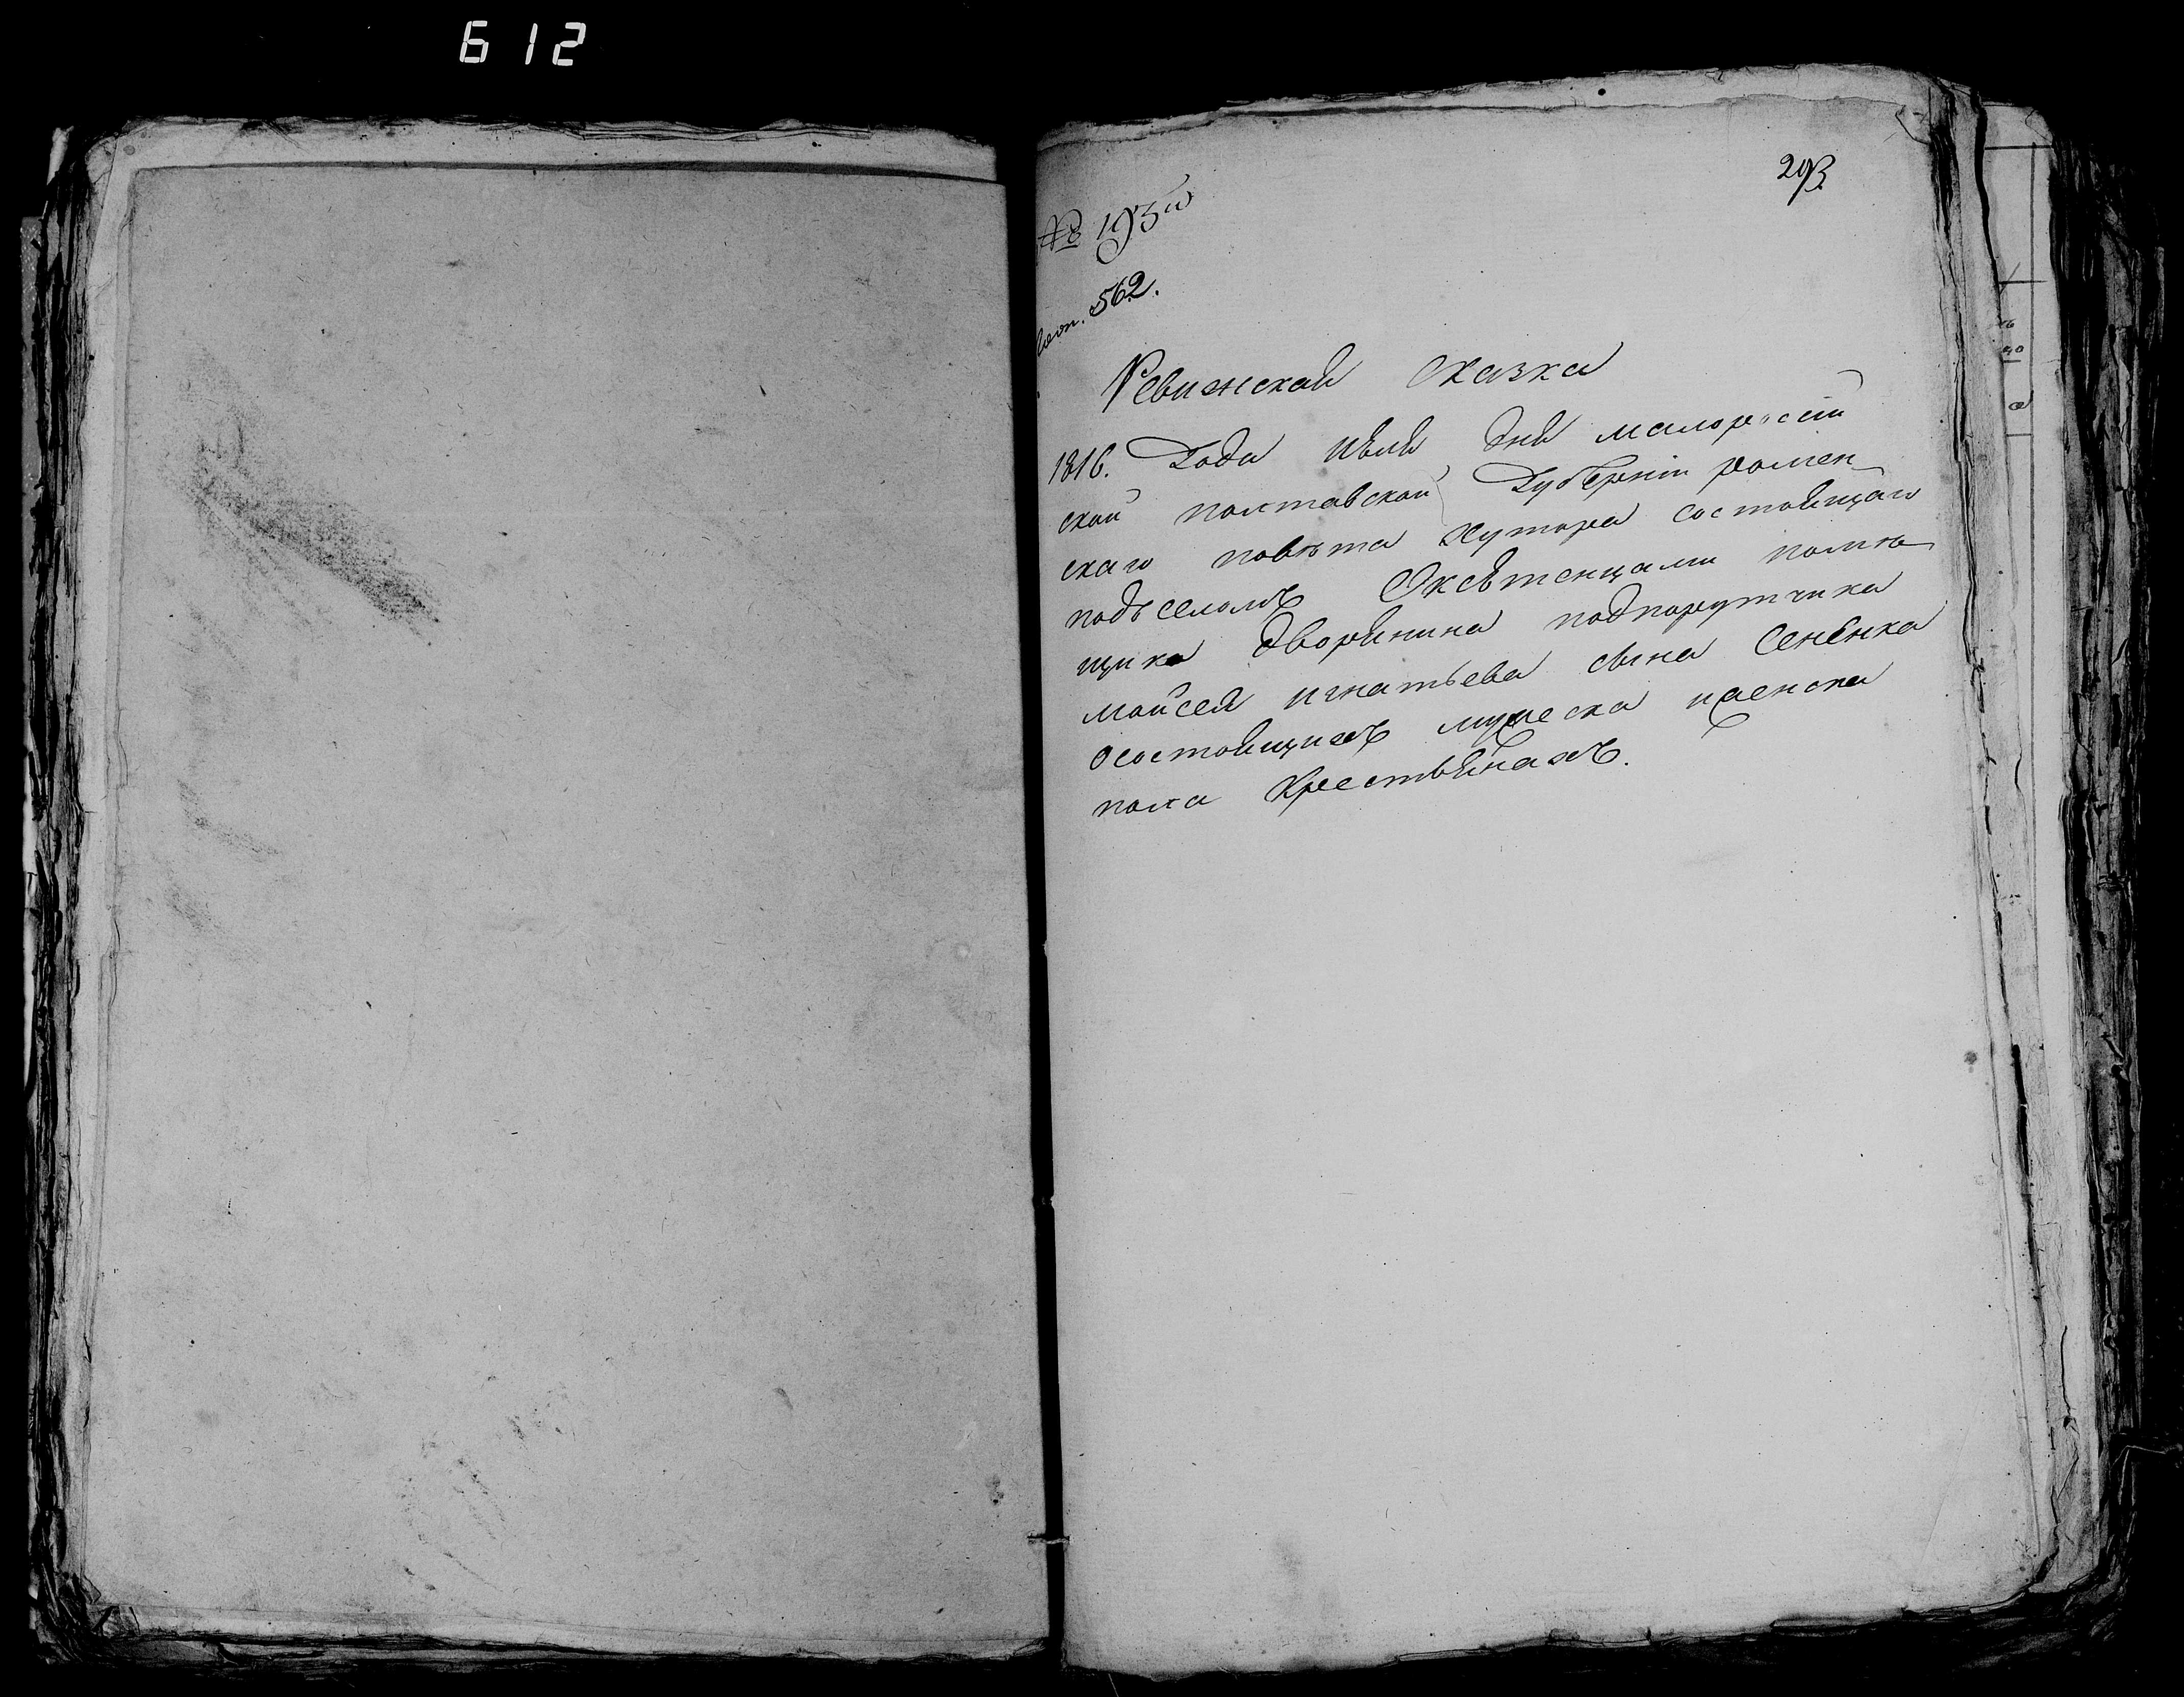 612
293
№ 193й
562.
Ревижская сказка
1816. Года июля дня малоросій
ской полтавской Губерніи ромен
скаго повѣта Хутора состоящаго
подъ селомъ Оксютенцами помѣ
щика дворянина подпорутчика
мойсея игнатьева сына Сененка
осостоящихъ мужеска иженска
пола Крестьянахъ.